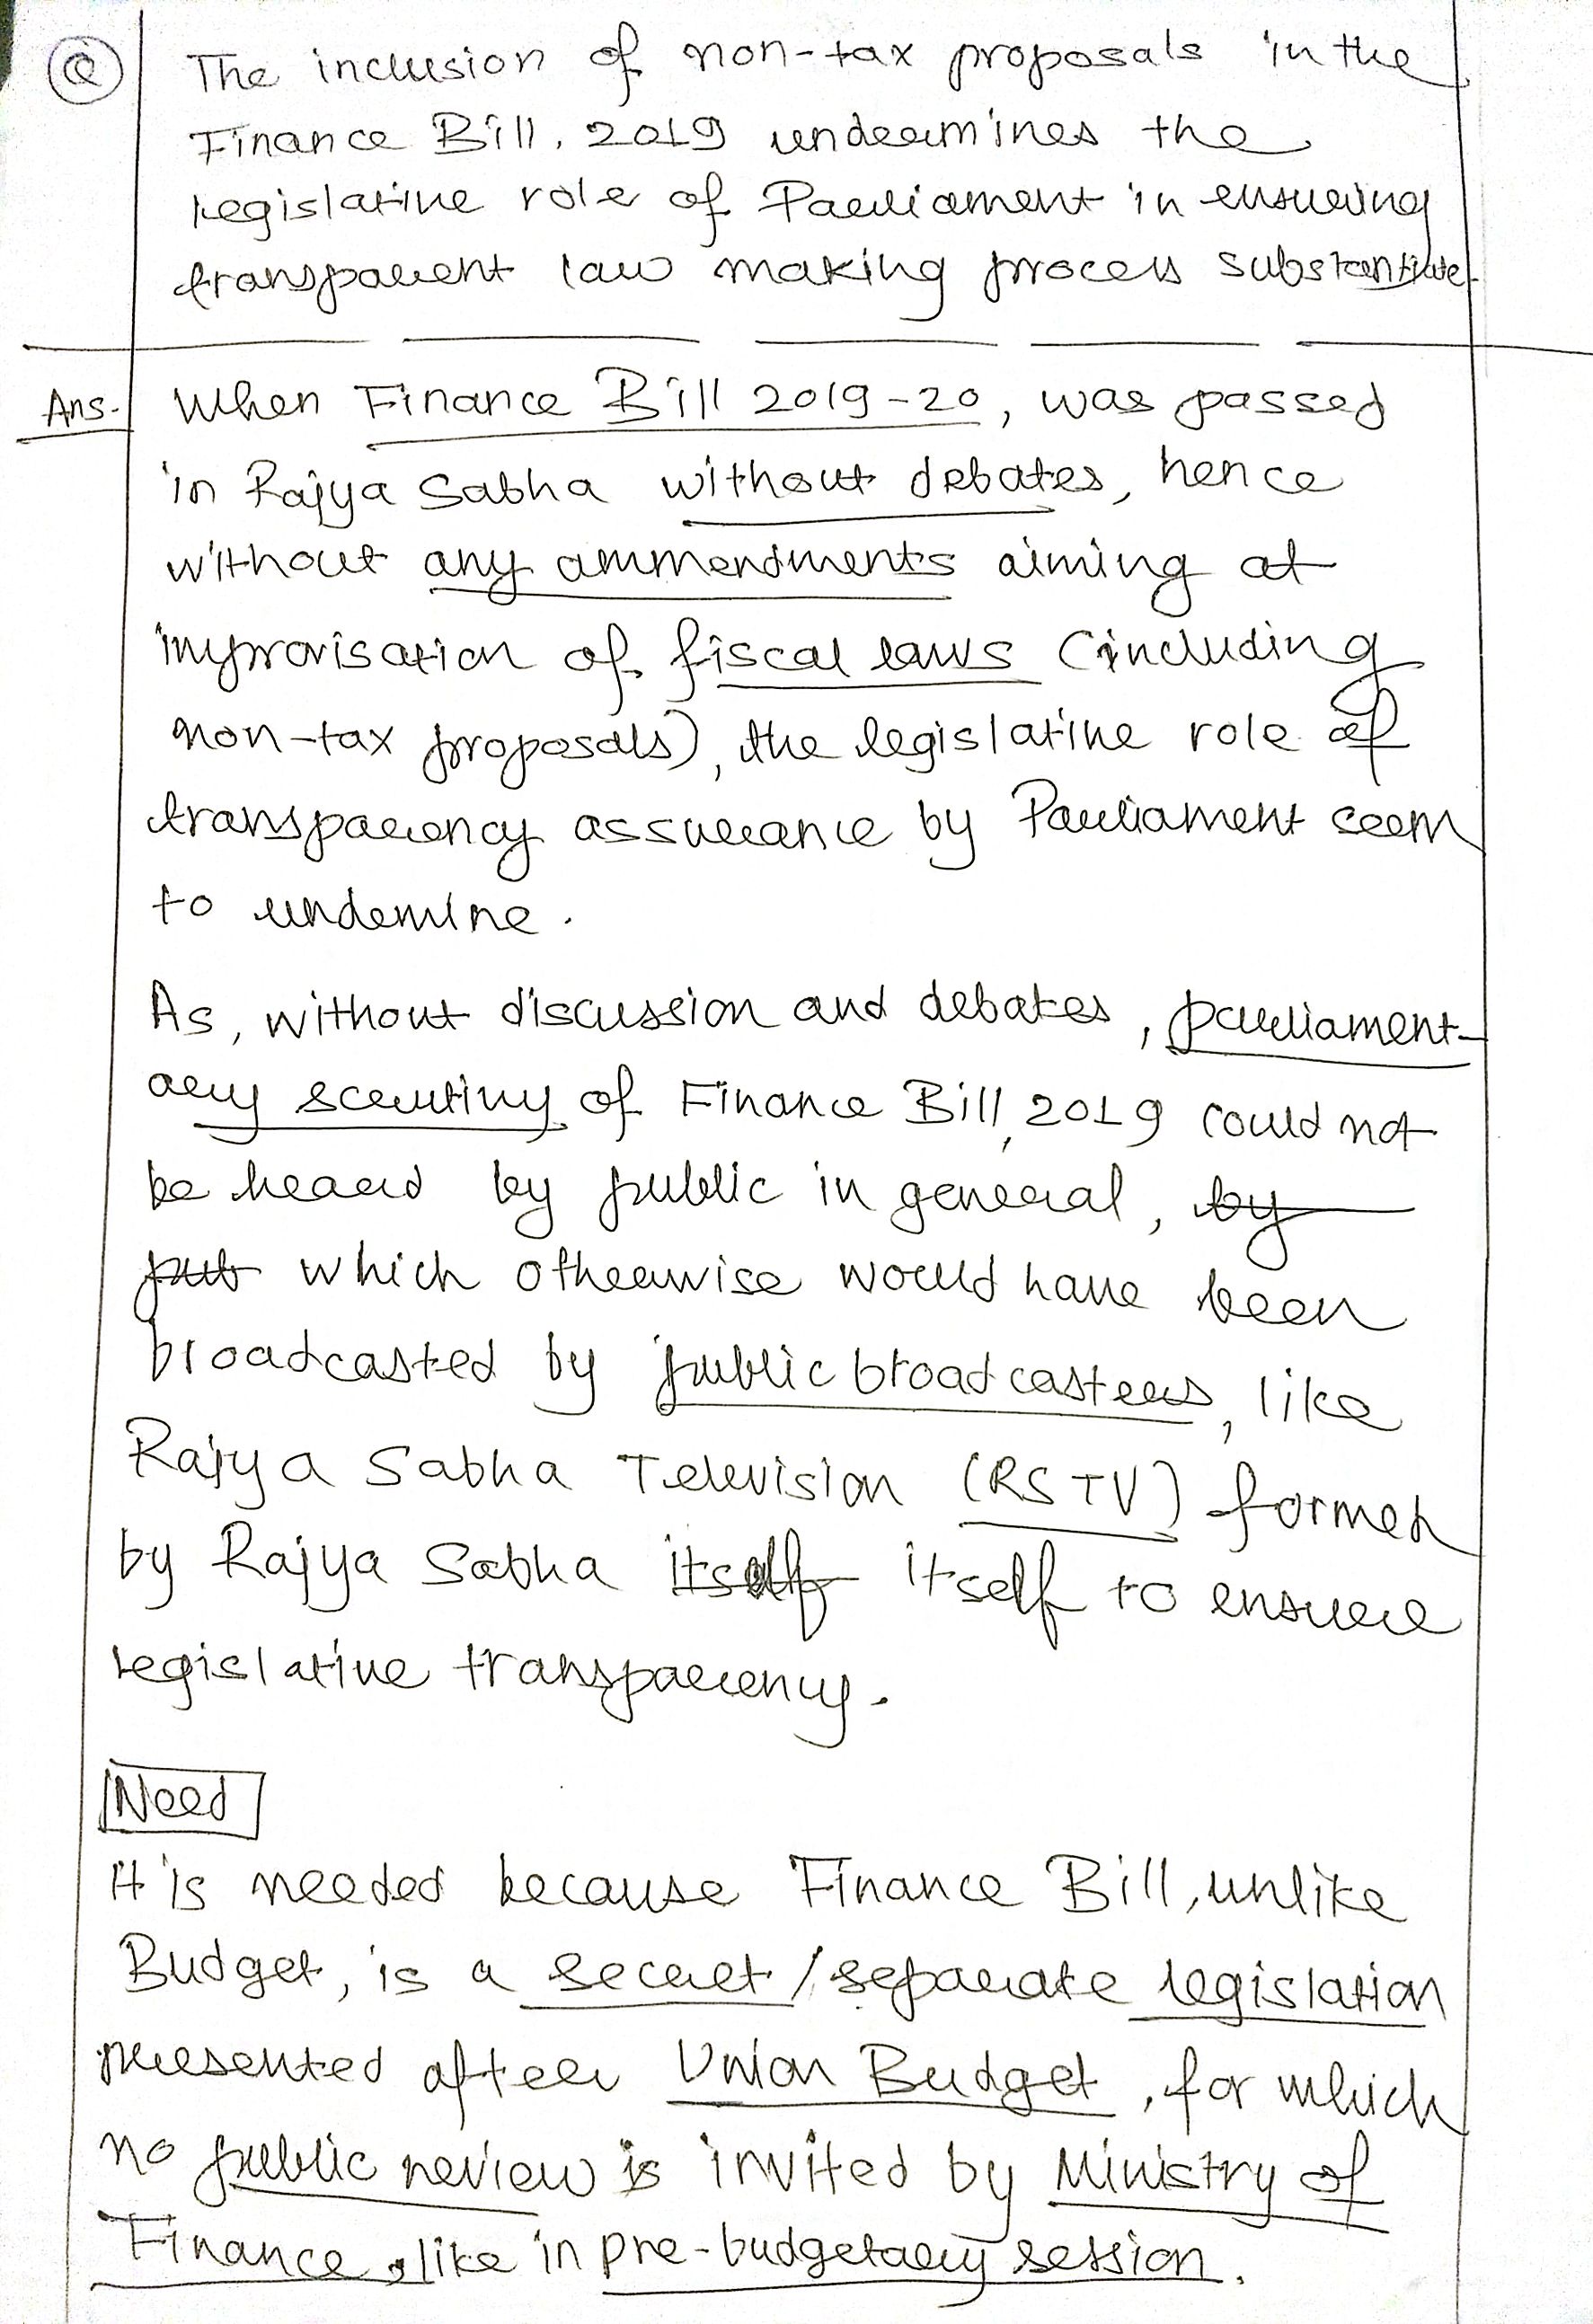 Q The inclusion of non-tax proposals in the
Finance Bill, 2019 undermines the
legislative role of Parliament in ensuring
transparent law making process substantiate.
Ans. When Finance Bill 2019-20, was passed
in Rajya Sabha without debates, hence
without any ammendments aiming at
improvisation of fiscal laws (including
non-tax proposals), the legislative role of
transparency assurance by Parliament seem
to undemine.
As, without discussion and debates, parliament-
ary scrutiny of Finance Bill, 2019 could not
be heard by public in general, by
pub which otherwise would have been
broadcasted by public broadcasters, like
Rajya Sabha Television (RSTV) formed
by Rajya Sabha itself itself to ensure
legislative transparency.
Need
It is needed because Finance Bill, unlike
Budget, is a secret/separate legislation
presented after Union Budget, for which
no public review is invited by Ministry of
Finance, like in pre-budgetary session.